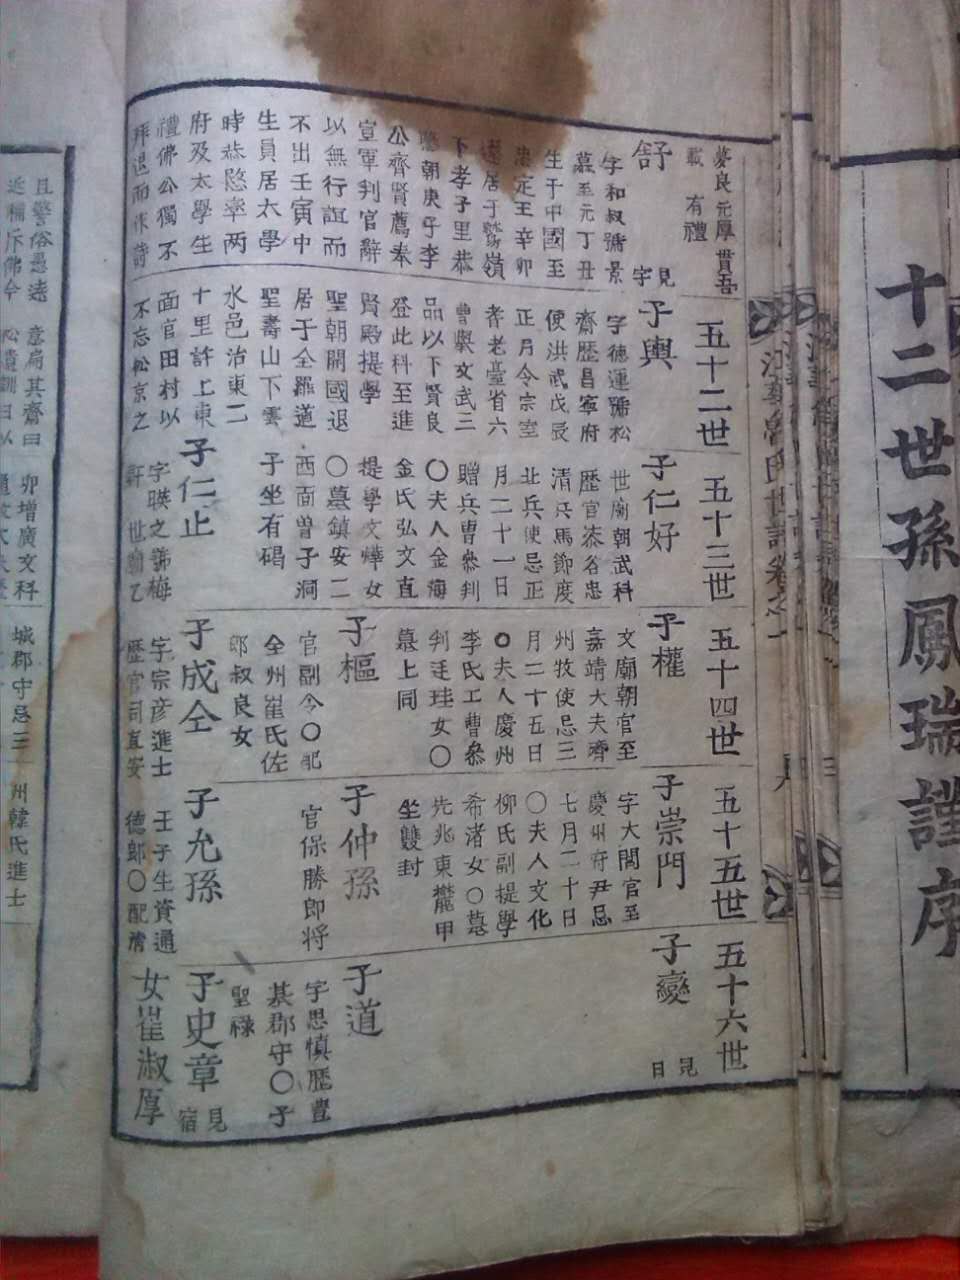 十二世孫鳳瑞謹序
夢良元厚貫吾
載　有禮
五十二世
五十三世
五十四世
五十五世
五十六世
舒
字和叔號景
慕至元丁丑
生于中國至
忠定王辛卯
居于鷲嶺
下孝子里恭
朝庚子李
公齊賢薦奉
宣軍判官辭
以無行誼而
不出壬寅中
生員居太學
時恭愍率兩
府及太學生
禮佛公獨不
拜退而作詩
見
宇
子輿
字德運號松
齋歷昌寧府
使洪武戊辰
正月令宗室
耆老臺省六
曹擧文武三
品以下賢良
登此科至進
賢殿提學
聖朝開國退
居于全羅道
聖壽山下雲
水邑治東二
十里許上東
面官田村以
不忘松京之
子仁好
世廟朝武科
歷官泰谷忠
清兵馬節度
北兵使忌正
月二十一日
贈兵曹參判
〇夫人金海
金氏弘文直
提學文燁女
〇墓鎮安二
西面曽子洞
子坐有碣
子仁止
字暎之號梅
軒　世廟乙
子權
文廟朝官至
嘉靖大夫齊
州牧使忌三
月二十五日
〇夫人慶州
李氏工曹參
判廷珪女〇
墓上同
子樞
官副令〇配
全州崔氏佐
郎叔良女
子成全
字宗彦進士
歷官司直安
子崇門
字大閭官至
慶州府尹忌
七月二十日
〇夫人文化
柳氏副提學
希渚女〇墓
先兆東麓甲
坐雙封
子仲孫
官保勝郎將
子允孫
壬子生資通
德郎〇配濟
子變
見
日
子道
字思慎歷豊
基郡守〇子
聖祿
子史章
見
宿
女崔淑厚
且警俗愚遠
近稱斥佛今
意扁其齋曰
松遺訓曰以
卯增廣文科
城郡守忌三
州韓氏進士